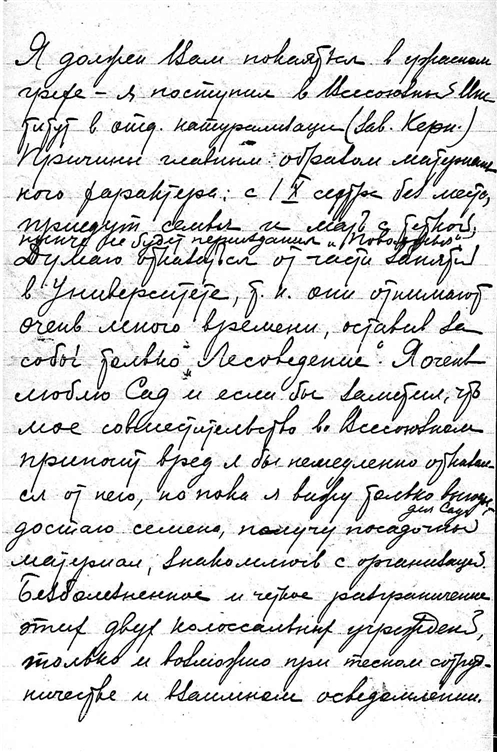 Я должен Вам покаяться в ужасном
грехе – я поступил в Всесоюзный Инс
титут в отд. натурализации (Зав. Керн.)
Причины главным образом материаль
ного характера: с 1 X сестра без места,
приедут семья и мать с теткой,
кроме не будет переиздания „
Думаю отказаться от части занятий
в Университете, т. к. они отнимают
очень много времени, оставив за
собой только „Лесоведение“. Я очень
люблю Сад и если бы заметил, что
мое совместительство во Всесоюзном
приносит вред я бы немедленно отказал
ся от него, но пока я вижу только выгоду
для Сада
достаю семена, получу посадочный
материал, знакомлюсь с организацией.
Безболезненное и четкое разграничение
этих двух колоссальных учреждений,
только и возможно при тесном сотруд-
ничестве и взаимном осведомлении.